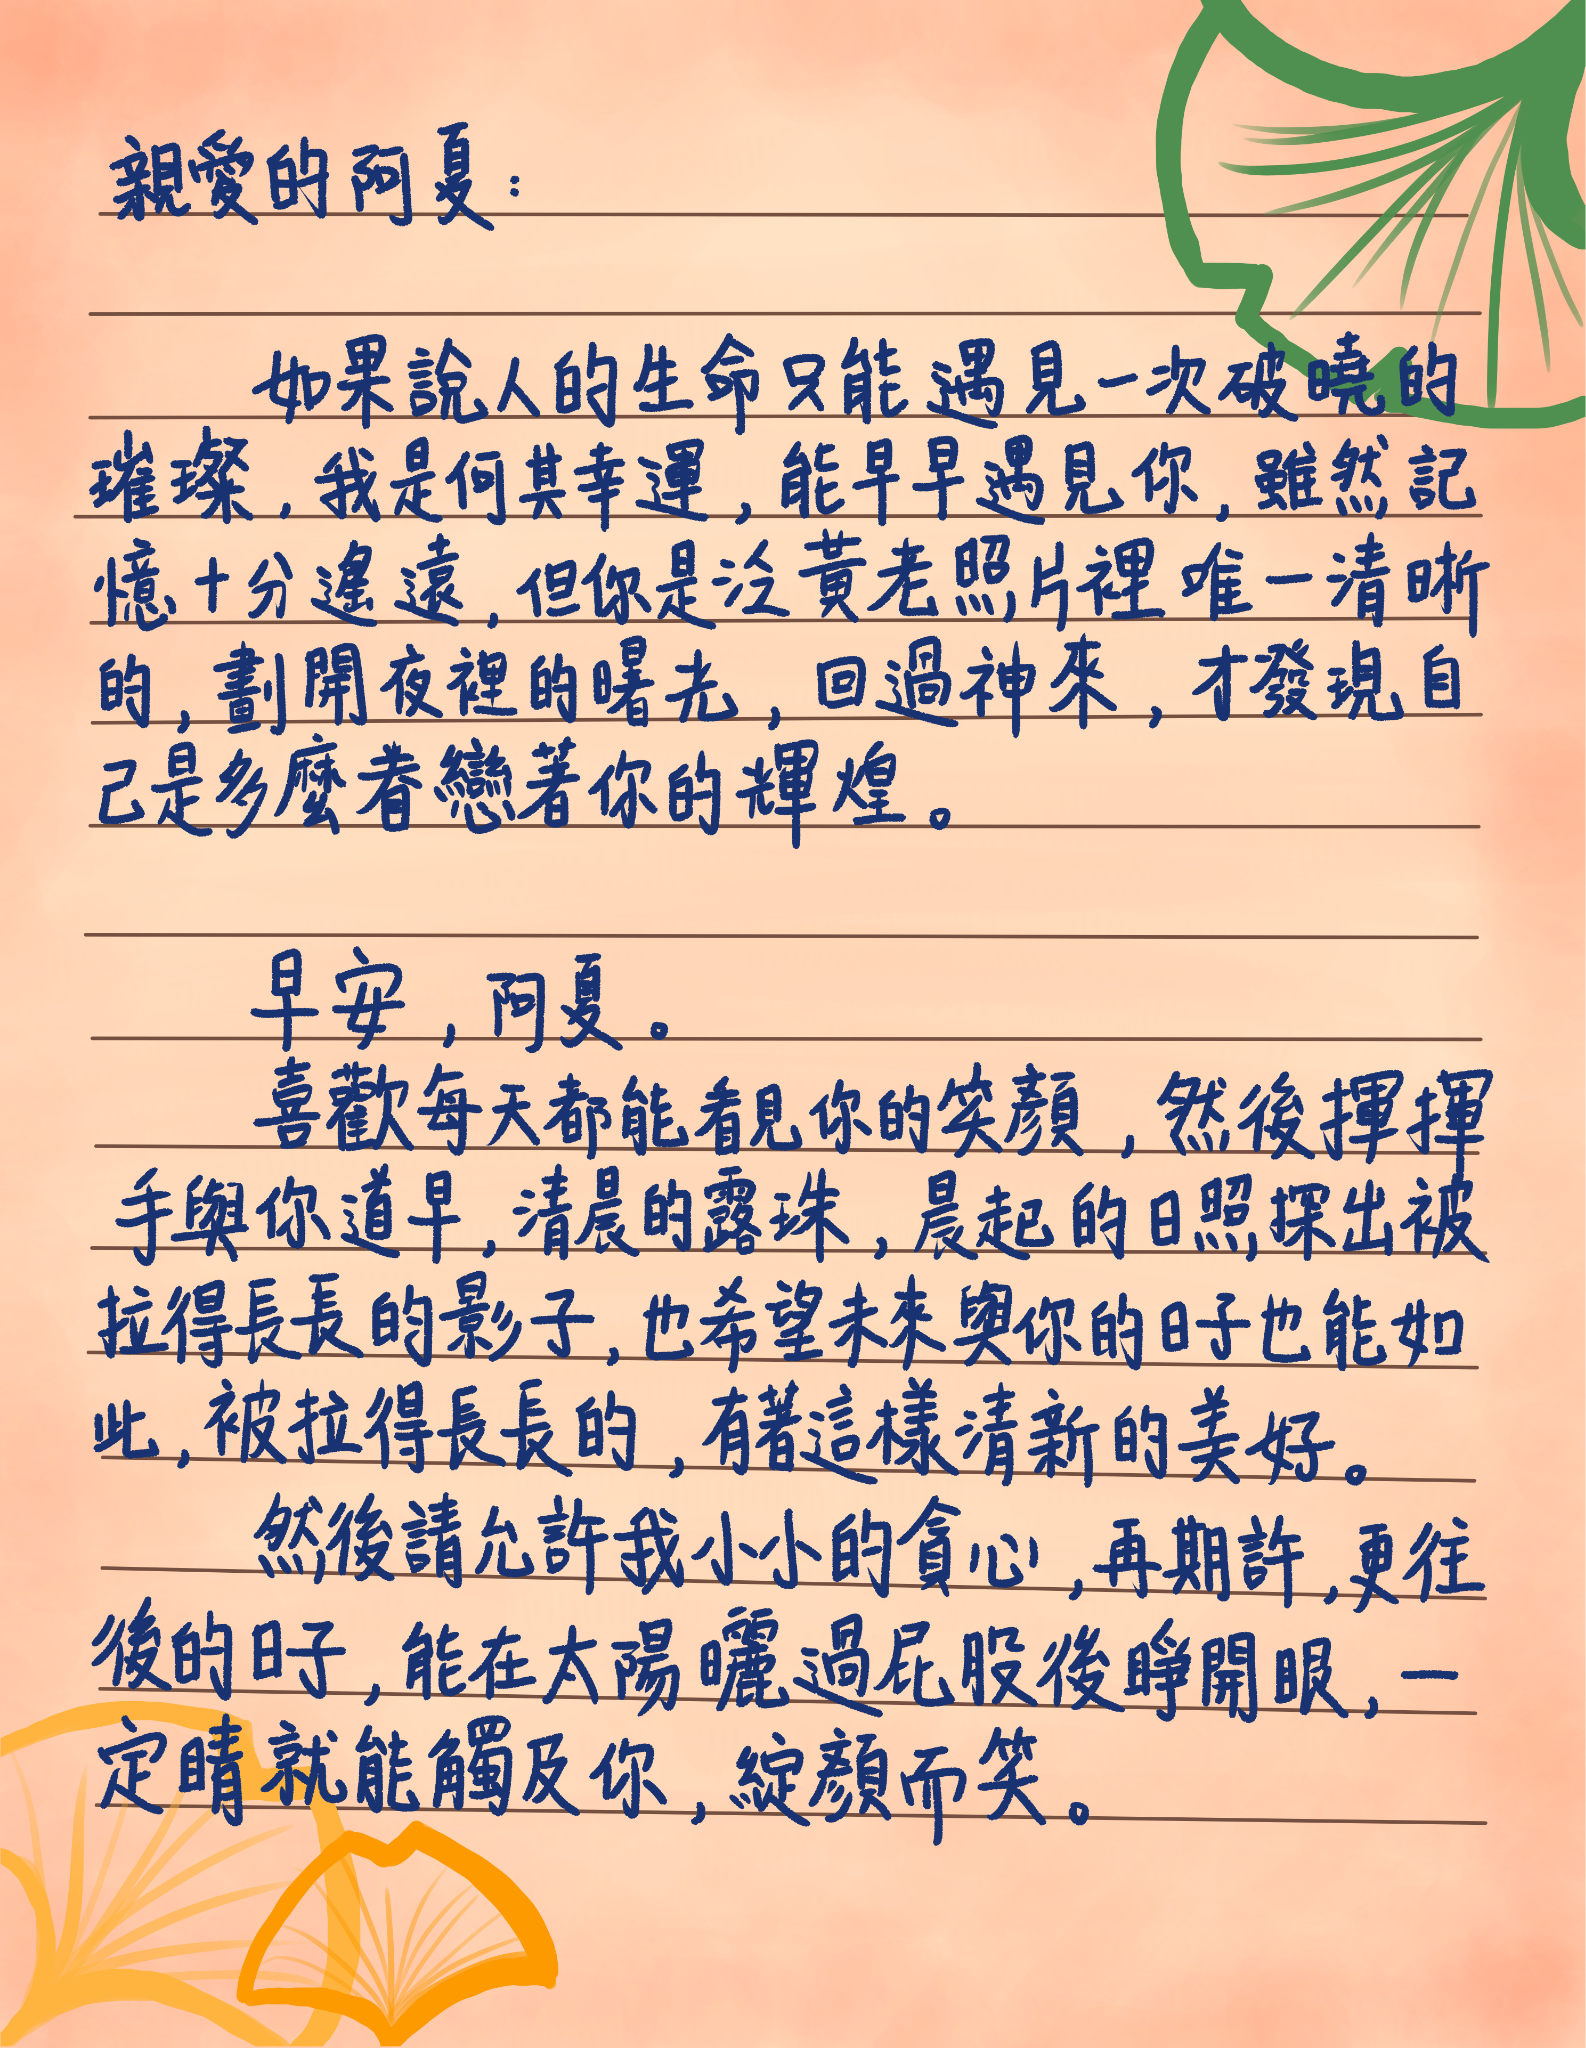 親愛的阿夏：
如果說人的生命只能遇見一次破曉的
璀璨，我是何其幸運，能早早遇見你，雖然記
憶十分遙遠，但你是泛黃老照片裡唯一清晰
的，劃開夜裡的曙光，回過神來，才發現自
己是多麼眷戀著你的輝煌。
早安，阿夏。
喜歡每天都能看見你的笑顏，然後揮揮
手與你道早，清晨的露珠，晨起的日照探出被
拉得長長的影子，也希望未來與你的日子也能如
此，被拉得長長的，有著這樣清新的美好。
然後請允許我小小的貪心，再期許，更往
後的日子，能在太陽曬過屁股後睜開眼，一
定睛就能觸及你，綻顏而笑。